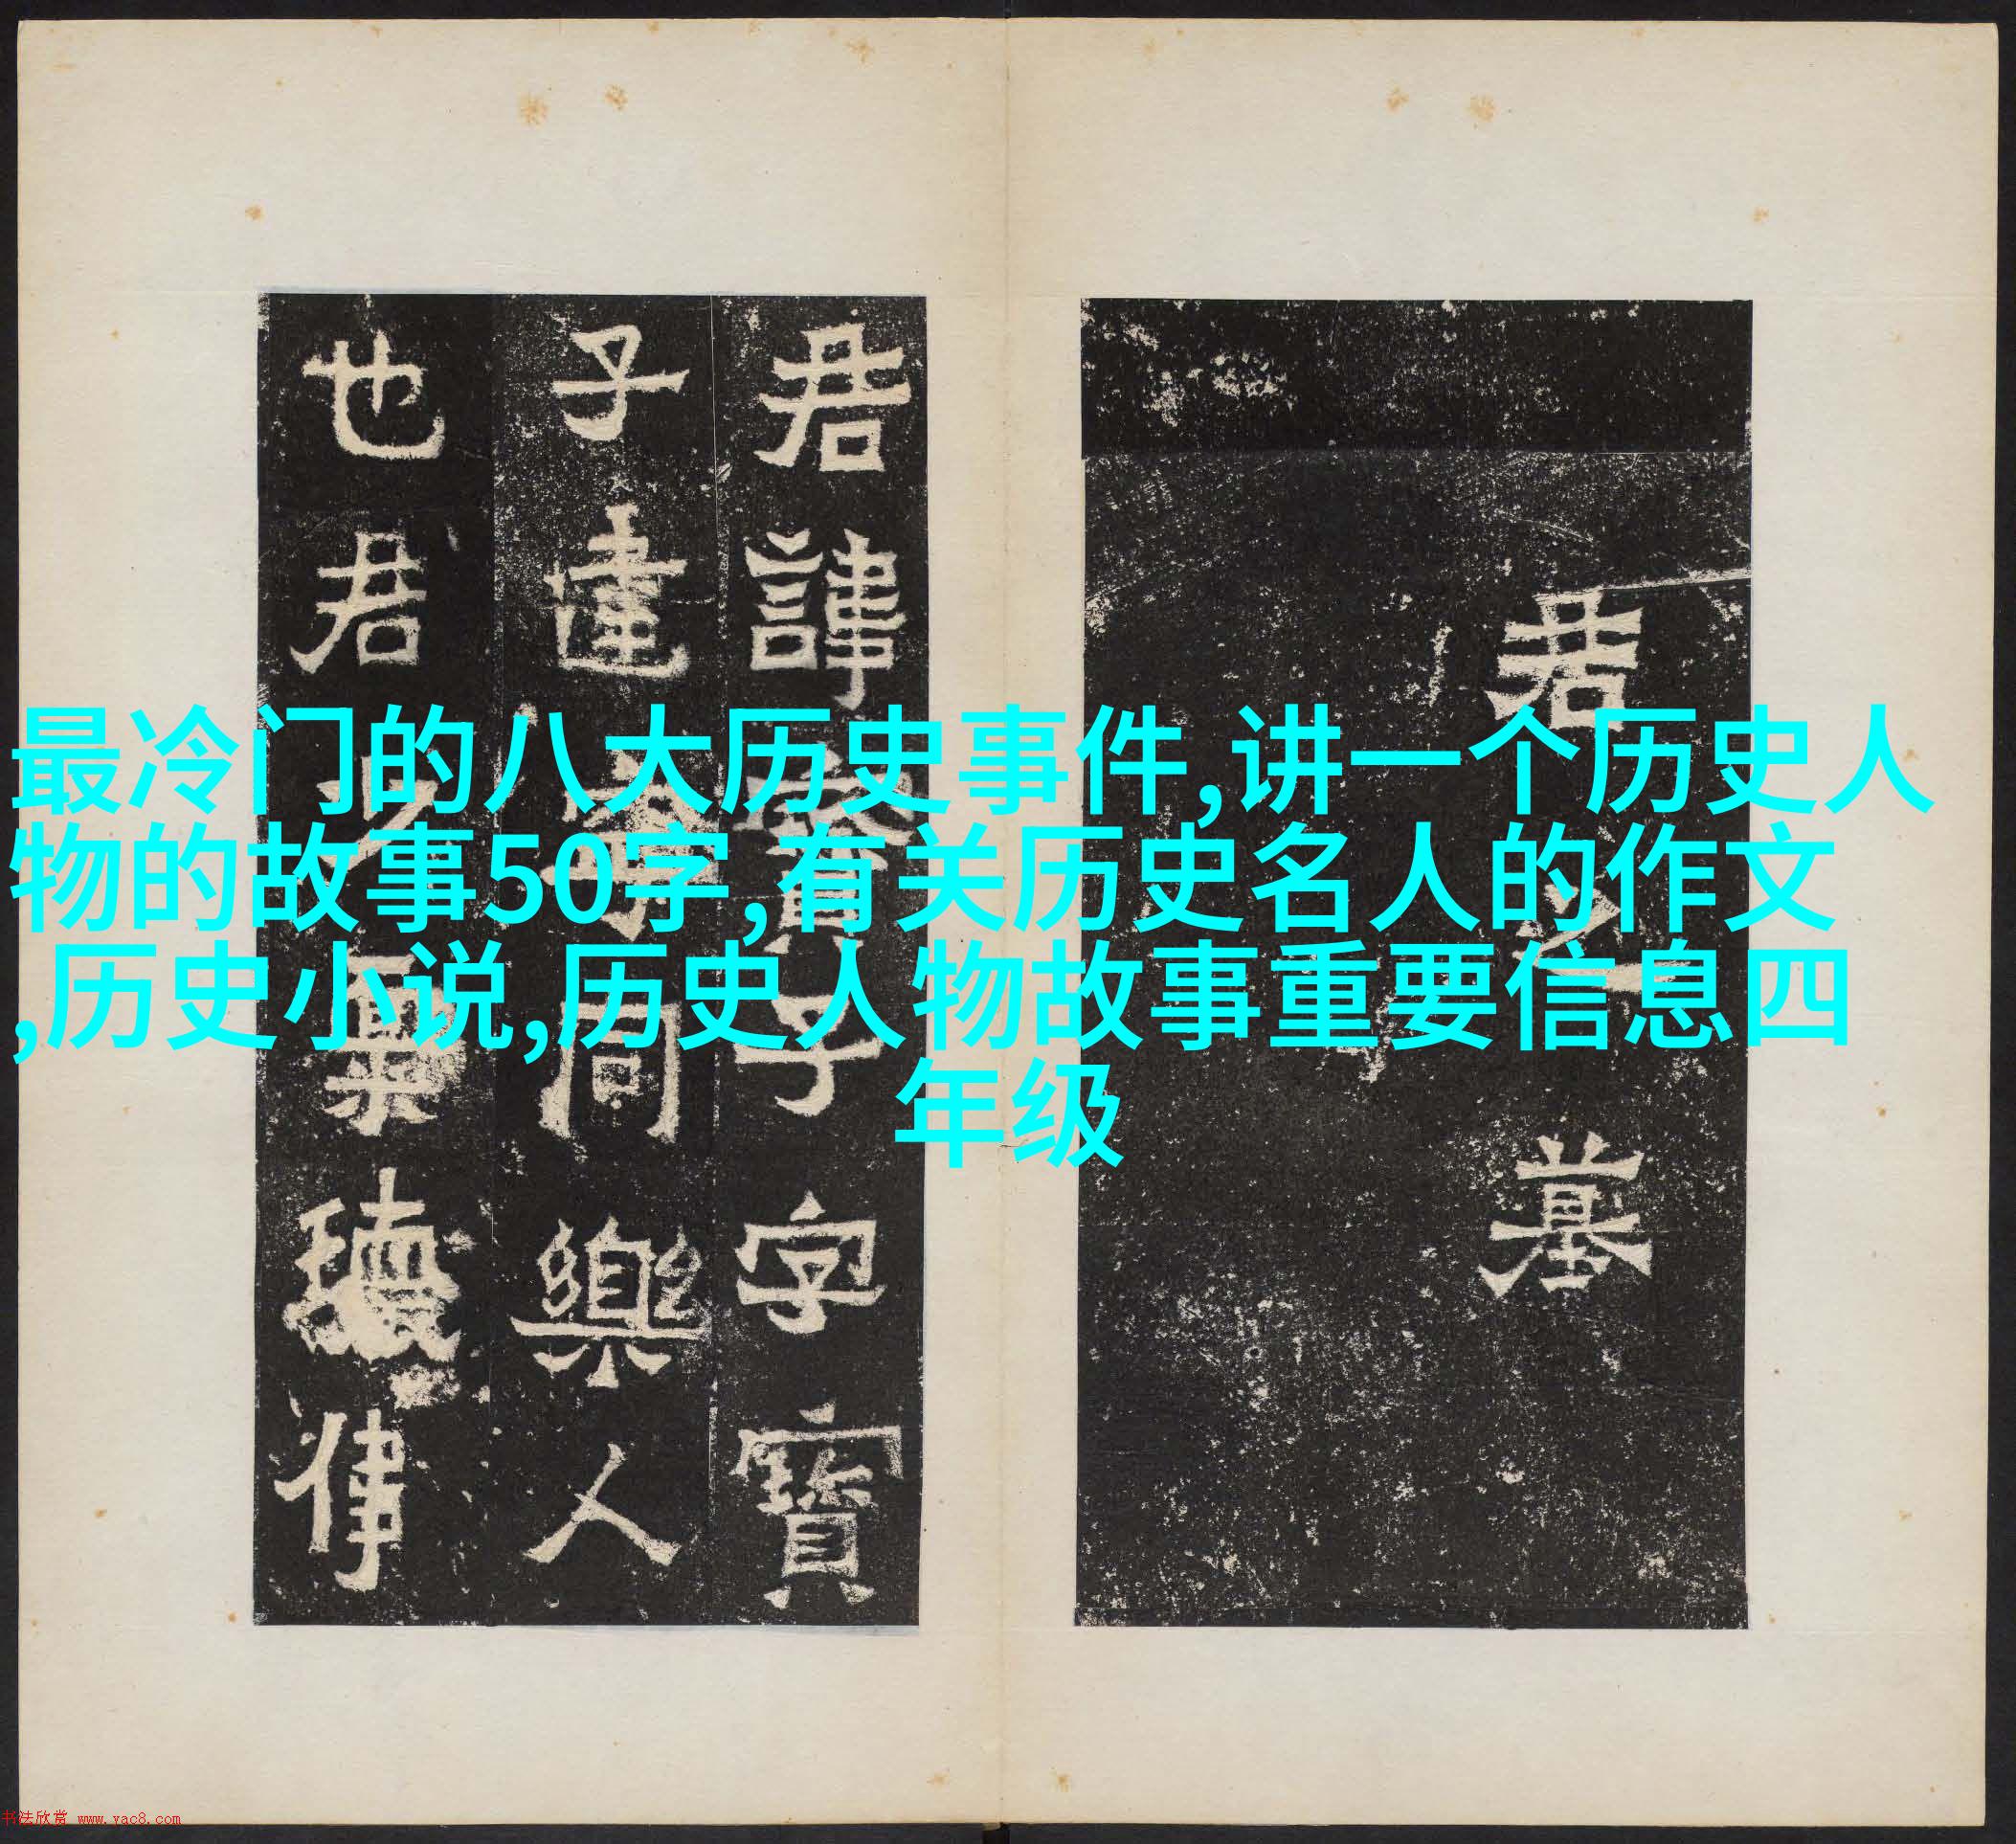 最冷门的八大历史事件,讲一个历史人
物的故事50字,有关历史名人的作文
,历史小说,历史人物故事重要信息四
年级
君之墓
君諱寶子字寶
子建寧同樂人
也君少稟瓌偉
书法欣赏 www.yac8.com